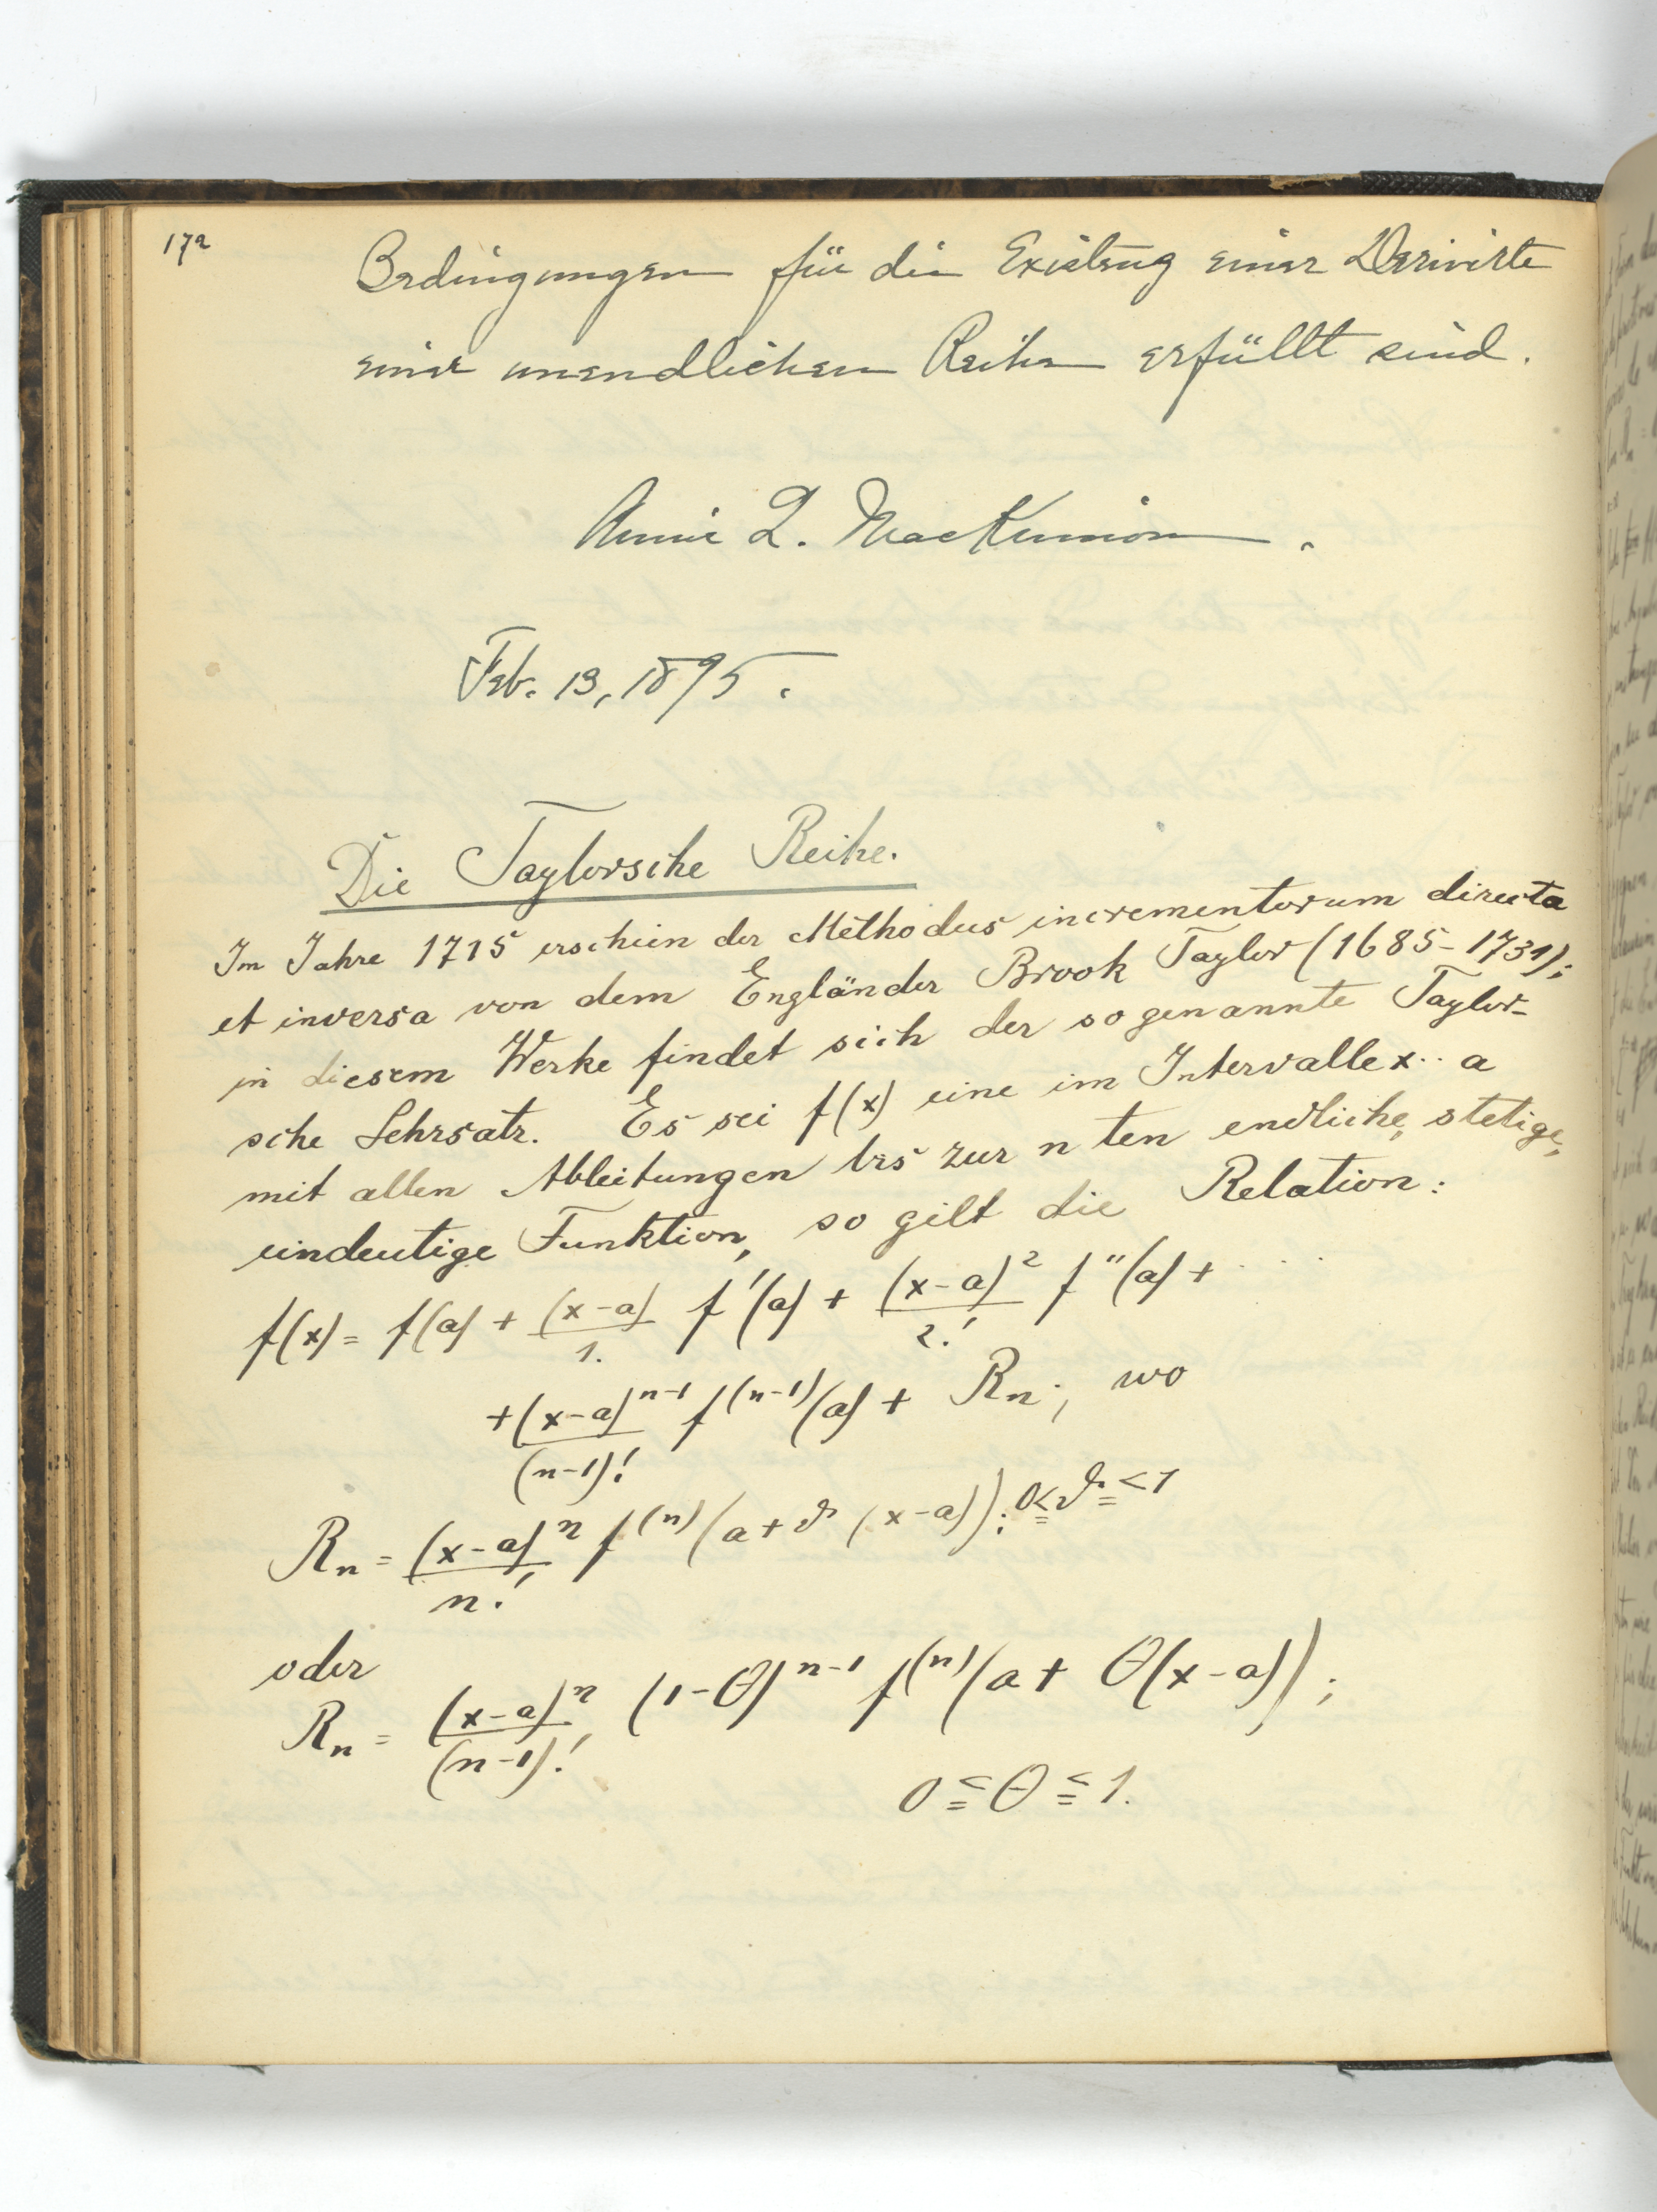 172
Bedingungen für die Existenz einer Derivirte
einer unendlichen Reihe erfüllt sind.
Annie L. MacKinnon.
Feb. 13, 1895.
Die Taylorsche Reihe.
Im Jahre 1715 erschien der Methodus incrementorum directa
et inversa von dem Engländer Brook Taylor (1685-1731);
in diesem Werke findet sich der sogenannte Taylor-
sche Lehrsatz. Es sei f(x) eine im Intervalle x·· a
mit allen Ableitungen bis zur n ten endliche, stetige,
eindeutige Funktion, so gilt die Relation:
f(x) = f(a) + (x-a)/1. f'(a) + (x-a)²/2! f''(a) + ....
+ (x-a)^{n-1}/(n-1)! f^{(n-1)}(a) + Rn; wo
Rn = (x-a)^n/n! f^{(n)}(a+ϑ(x-a)); 0≦ϑ≦1
oder
Rn = (x-a)^n/(n-1)! (1-θ)^{n-1} f^{(n)}(a+ θ(x-a));
0≦θ≦1.